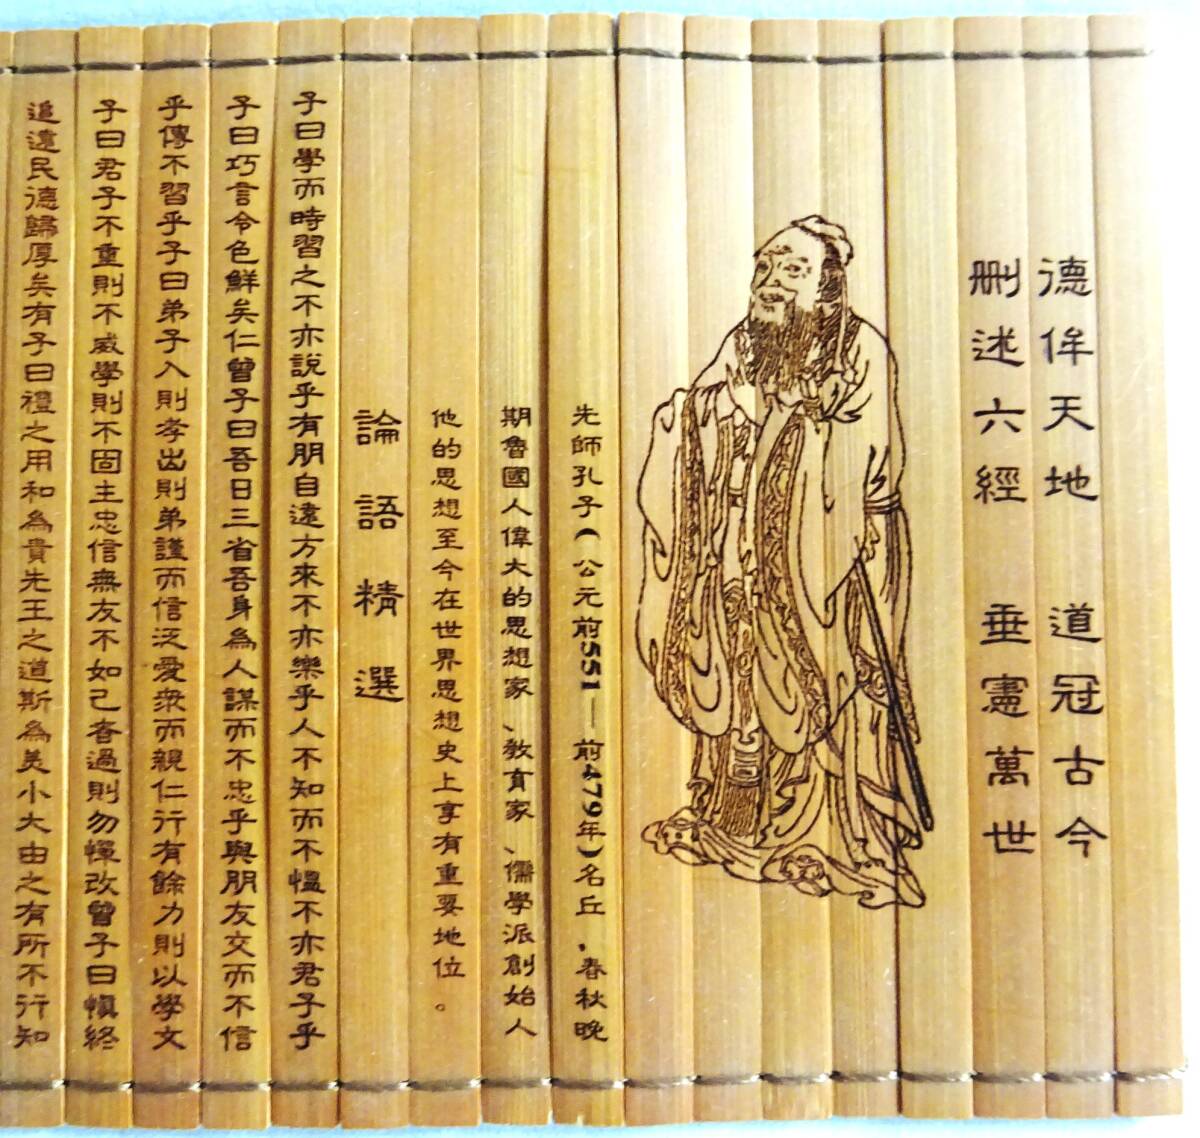 德侔天地 道冠古今
刪述六經 垂憲萬世
先師孔子(公元前551—前479年)名丘,春秋晚
期魯國人偉大的思想家、教育家、儒學派創始人
他的思想至今在世界思想史上享有重要地位。
論語精選
子曰學而時習之不亦說乎有朋自遠方來不亦樂乎人不知而不慍不亦君子乎
子曰巧言令色鮮矣仁曾子曰吾日三省吾身為人謀而不忠乎與朋友交而不信
乎傳不習乎子曰弟子入則孝出則弟謹而信泛愛衆而親仁行有餘力則以學文
子曰君子不重則不威學則不固主忠信無友不如己者過則勿憚改曾子曰慎終
追遠民德歸厚矣有子曰禮之用和為貴先王之道斯為美小大由之有所不行知